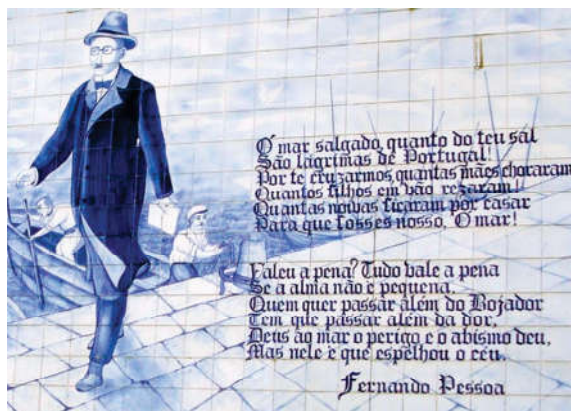 Ó mar salgado, quanto do teu sal
São lágrimas de Portugal!
Por te cruzarmos, quantas mães choraram
Quantos filhos em vão rezaram!
Quantas noivas ficaram por casar
Para que fosses nosso, Ó mar!
Valeu a pena? Tudo vale a pena
Se a alma não é pequena.
Quem quer passar além do Bojador
Tem que passar além da dor,
Deus ao mar o perigo e o abismo deu,
Mas nele é que espelhou o céu.
Fernando Pessoa